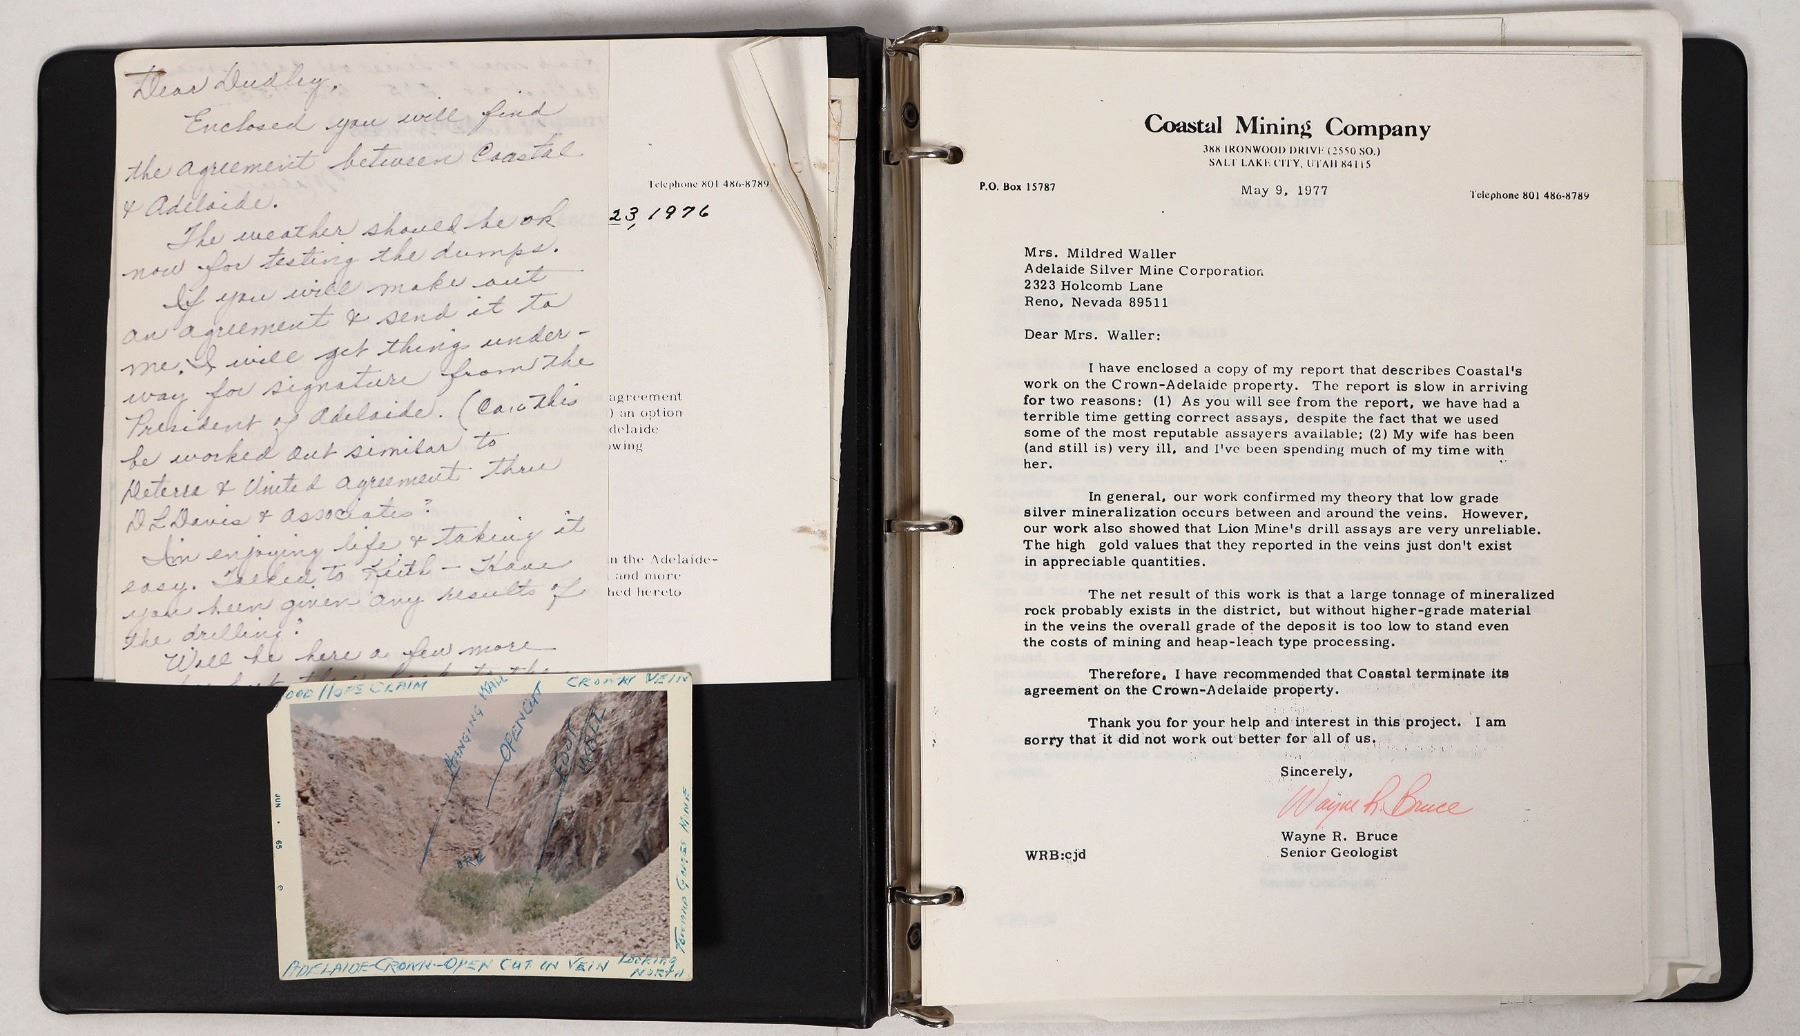 Dear Dudley,
Enclosed you will find
the agreement between Coastal
& Adelaide.
The weather should be ok
now for testing the dumps.
If you will make out
an agreement & send it to
me. I will get things under-
way for signature from the
President of Adelaide. (Can this
be worked out similar to
& United agreement thru
D L Davis & Associates?
I'm enjoying life & taking it
easy. Talked to Keith - Have
you been given any results of
the drilling?
Will be here a few more
Telephone 801 486-8789
23, 1976
agreement
) an option
delaide
owing
n the Adelaide-
and more
hed hereto
OOD HOPE CLAIM
CROWN VEIN
HANGING WALL
OPEN CUT
FOOT
WALL
ORE
JUN · 65
TOWARD GOUGES MINE
ADELAIDE-CROWN-OPEN CUT ON VEIN
LOOKING
NORTH
Coastal Mining Company
388 IRONWOOD DRIVE (2550 SO.)
SALT LAKE CITY, UTAH 84115
P.O. Box 15787
May 9, 1977
Telephone 801 486-8789
Mrs. Mildred Waller
Adelaide Silver Mine Corporation
2323 Holcomb Lane
Reno, Nevada 89511
Dear Mrs. Waller:
I have enclosed a copy of my report that describes Coastal's
work on the Crown-Adelaide property. The report is slow in arriving
for two reasons: (1) As you will see from the report, we have had a
terrible time getting correct assays, despite the fact that we used
some of the most reputable assayers available; (2) My wife has been
(and still is) very ill, and I've been spending much of my time with
her.
In general, our work confirmed my theory that low grade
silver mineralization occurs between and around the veins. However,
our work also showed that Lion Mine's drill assays are very unreliable.
The high gold values that they reported in the veins just don't exist
in appreciable quantities.
The net result of this work is that a large tonnage of mineralized
rock probably exists in the district, but without higher-grade material
in the veins the overall grade of the deposit is too low to stand even
the costs of mining and heap-leach type processing.
Therefore, I have recommended that Coastal terminate its
agreement on the Crown-Adelaide property.
Thank you for your help and interest in this project. I am
sorry that it did not work out better for all of us.
Sincerely,
Wayne R. Bruce
Wayne R. Bruce
Senior Geologist
WRB:cjd